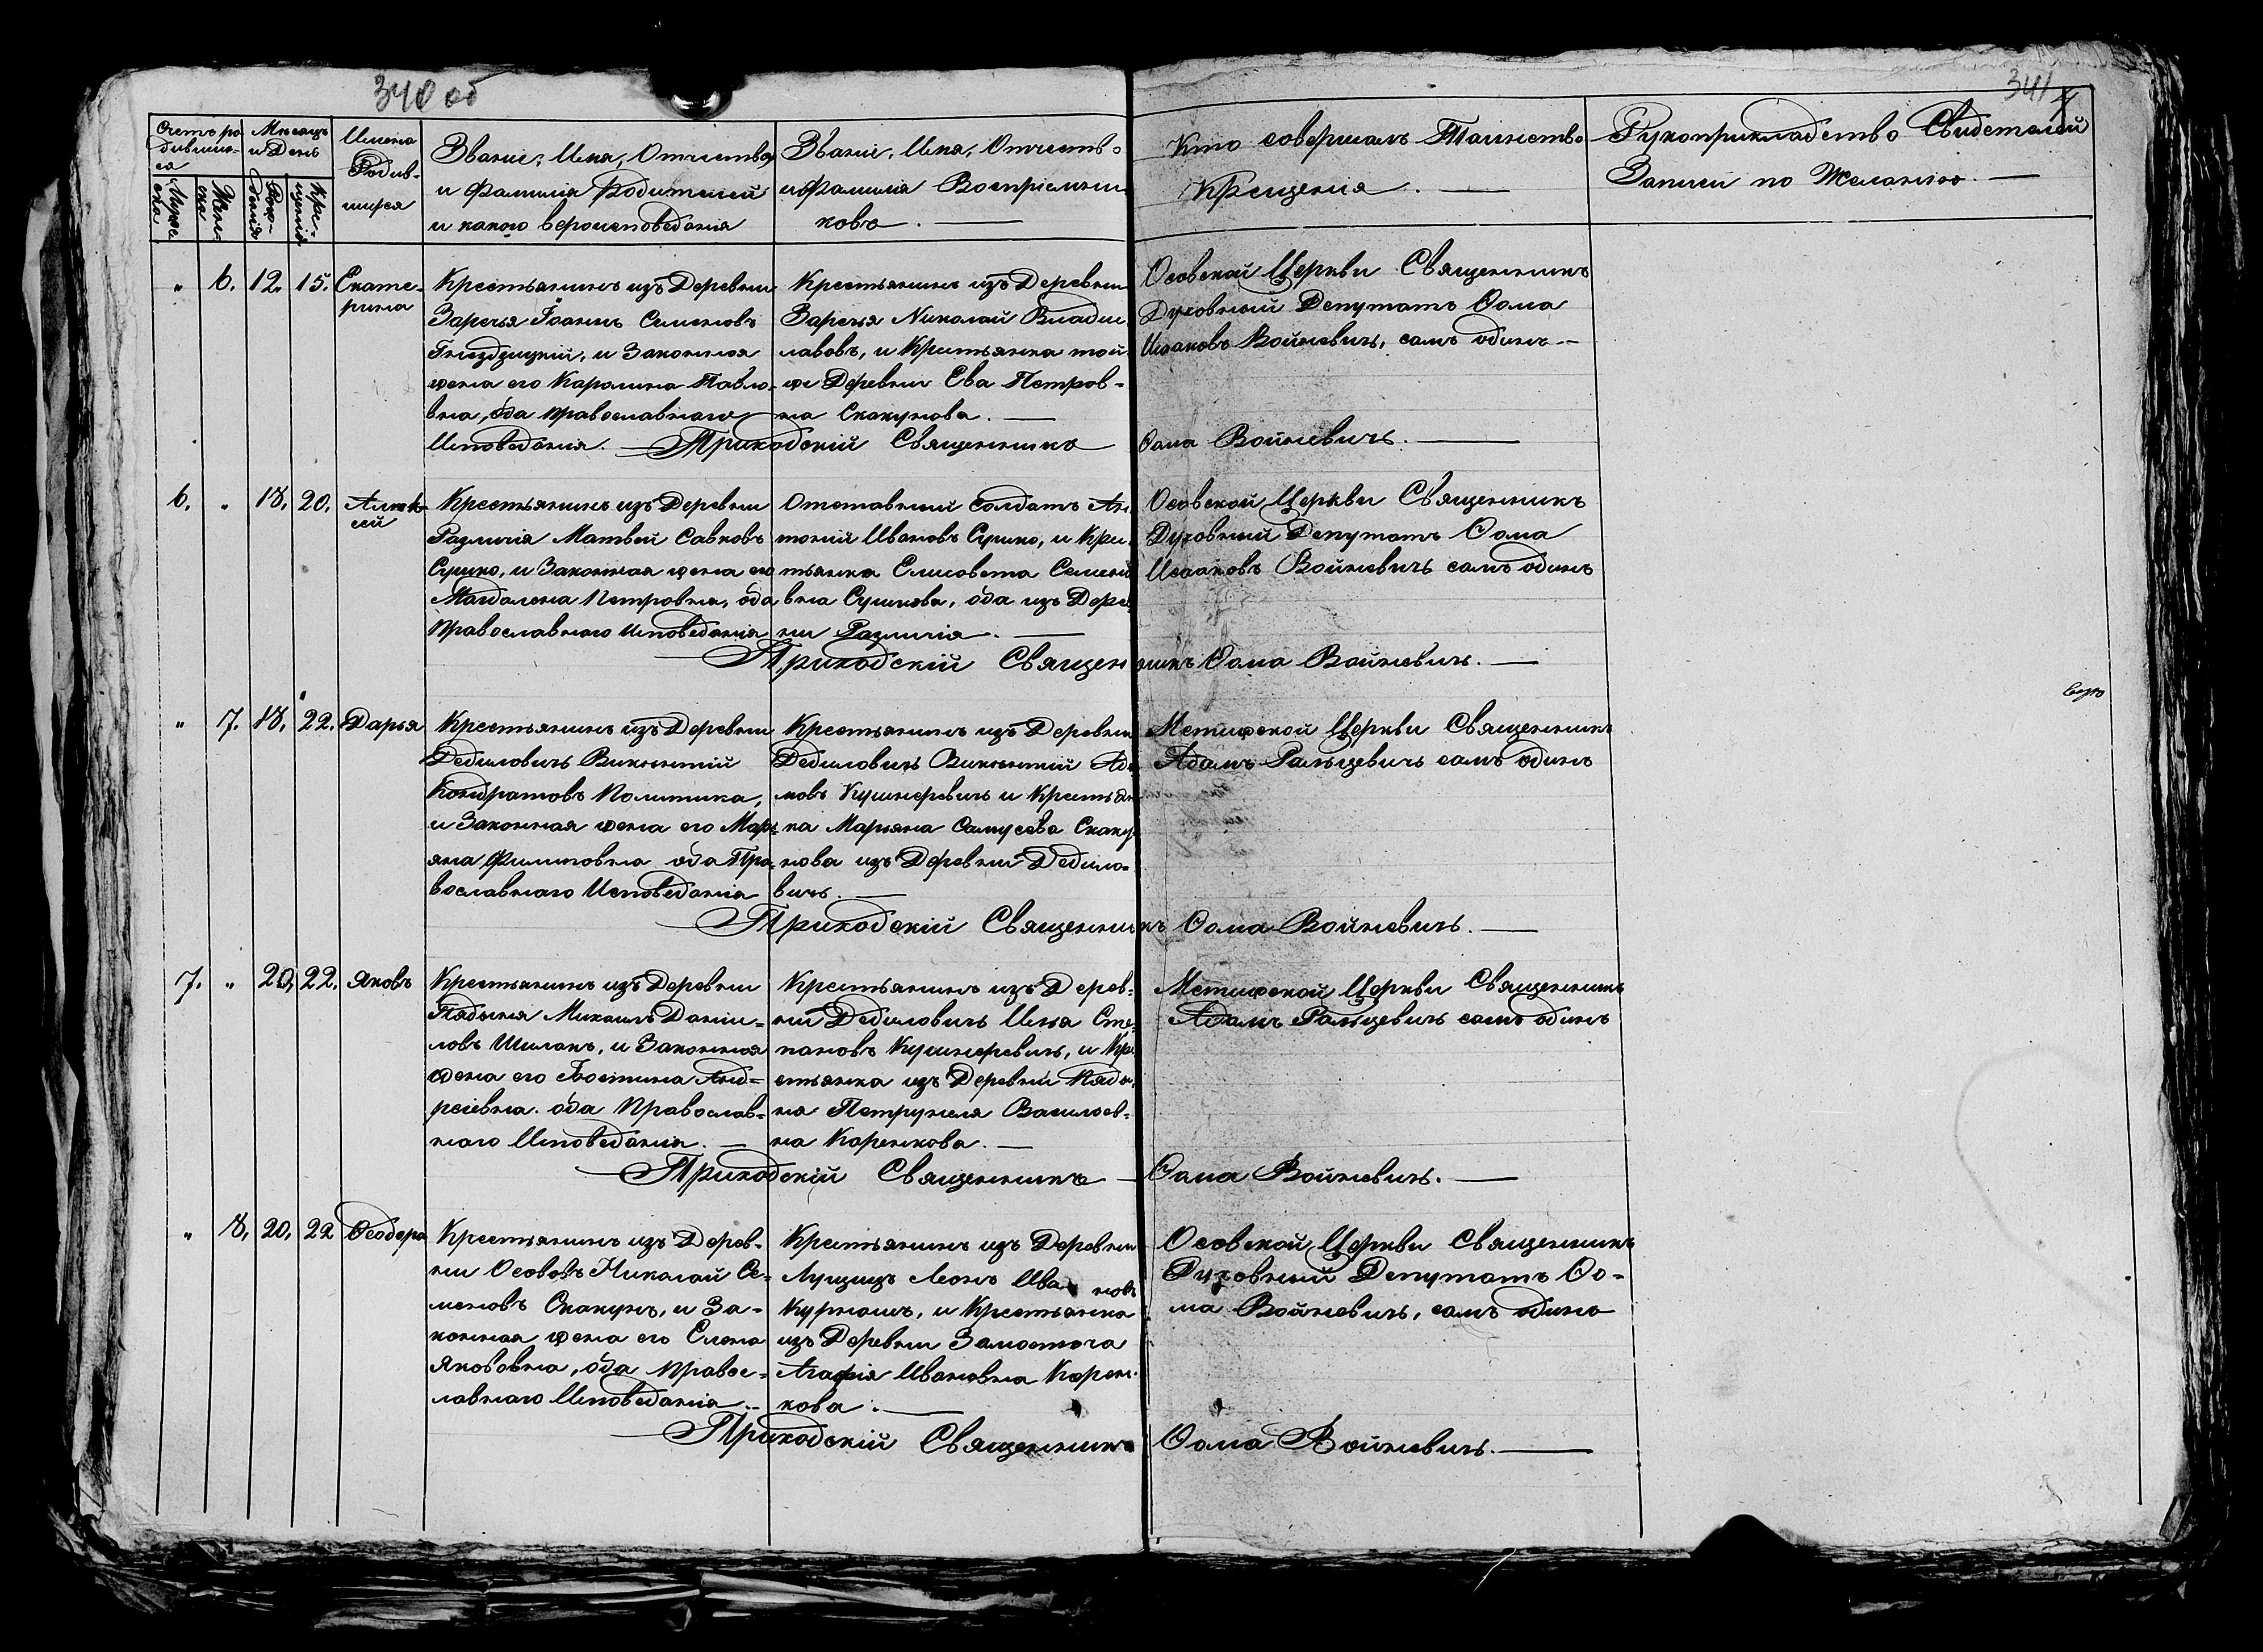 340 об
341
4
Счетъ ро
дивших-
ся
Муже
ска
Жен-
ска
Мѣсяцъ
и День
Рож-
денія
Кре-
щенія
Имена
Родив-
шихся
Званіе, Имя, Отчество
и Фамилія Родителей
и какого вероисповеданія
Званіе, Имя, Отчество
и Фамилія Воспріемни
ковъ.
Кто совершалъ Таинство
Крещенія.
Рукоприкладство Свидетелей
Записи по Желанію.
" 6. 12. 15. Екате-
рина
Крестьянинъ изъ Деревни
Заречья Іоаннъ Семеновъ
Гнездзицкій, и Законная
жена его Каролина Павло-
вна, оба православнаго
Исповеданія.
Крестьянинъ изъ Деревни
Заречья Николай Владис
лавовъ, и Крестьянка той
же Деревни Ева Петров-
на Скакунова.
Осовской Церкви Священникъ
Духовный Депутатъ Ѳома
Исааковъ Войневичъ, самъ одинъ
Приходскій Священникъ Ѳома Войневичъ.
6. " 18. 20. Алек-
сей
Крестьянинъ изъ Деревни
Разлитія Матвей Савковъ
Сушко, и Законная жена его
Магдалена Петровна, оба
православнаго Исповеданія
Отставный Солдатъ Ан
тоній Ивановъ Сушко, и Крес
тьянка Елисовета Семено
вна Сушкова, оба изъ Дерев
ни Разлитія.
Осовской Церкви Священникъ
Духовный Депутатъ Ѳома
Исааковъ Войневичъ самъ одинъ
Приходскій Священникъ Ѳома Войневичъ.
" 7. 18. 22. Дарья
Крестьянинъ изъ Деревни
Дедиловичъ Викентій
Кондратовъ Политика,
и Законная жена его Марь
яна Филиповна оба Пра-
вославнаго Исповеданія
Крестьянинъ изъ Деревни
Дедиловичъ Викентій Ада
мовъ Кушнеревичъ и Крестьян
ка Марьяна Самусева Скаку
нова изъ Деревни Дедило-
вичъ.
Метижской Церкви Священникъ
Адамъ Ральцевичъ самъ одинъ
Приходскій Священникъ Ѳома Войневичъ.
7. " 20. 22. Яковъ
Крестьянинъ изъ Деревни
Пядыня Михаилъ Дании-
ловъ Шилакъ, и Законная
жена его Іюстина Анд-
реевна. оба Православ-
наго Исповеданія.
Крестьянинъ изъ Дерев-
ни Дедиловичъ Илья Сте-
пановъ Кушнеревичъ, и Кре
стьянка изъ Деревни Пяды
ня Петрунеля Васильев-
на Коренкова.
Метижской Церкви Священникъ
Адамъ Ральцевичъ самъ одинъ
Приходскій Священникъ Ѳома Войневичъ.
" 8. 20. 22 Ѳеодора
Крестьянинъ изъ Дерев-
ни Осововъ Николай Се-
меновъ Скакунъ, и За-
конная жена его Елена
Якововна, оба правос-
лавнаго Исповеданія
Крестьянинъ изъ Деревни
Лущицъ Леонъ Ивановъ
Курношъ, и Крестьянка
изъ Деревни Замосточа
Агафія Ивановна Корен-
кова.
Осовской Церкви Священникъ
Духовный Депутатъ Ѳо-
ма Войневичъ, самъ одинъ
Приходскій Священникъ Ѳома Войневичъ.